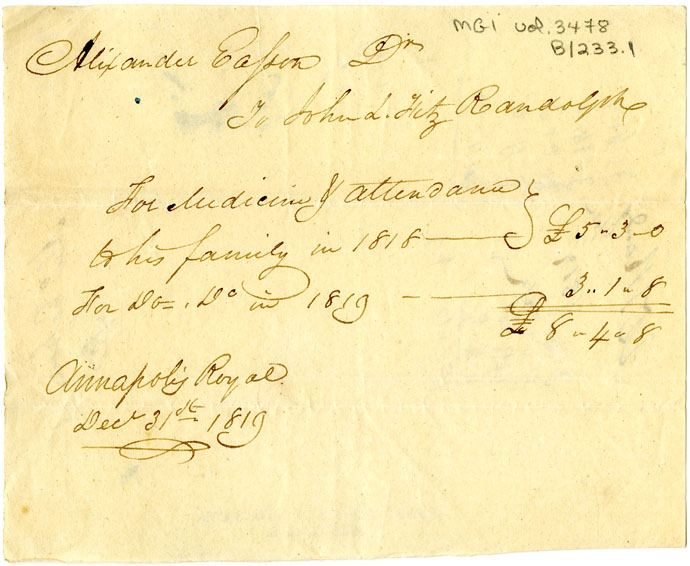 MG1 vol. 3478
B1233.1
Alixander Easson Dr
To John L. Fitz Randolph
For Medicine & attendance
to his family in 1818 — £ 5 " 3 - 0
For Do = . Do in 1819 - — 3 " 1 " 8
£ 8 " 4 " 8
Annapolis Royal
Decr 31st 1819